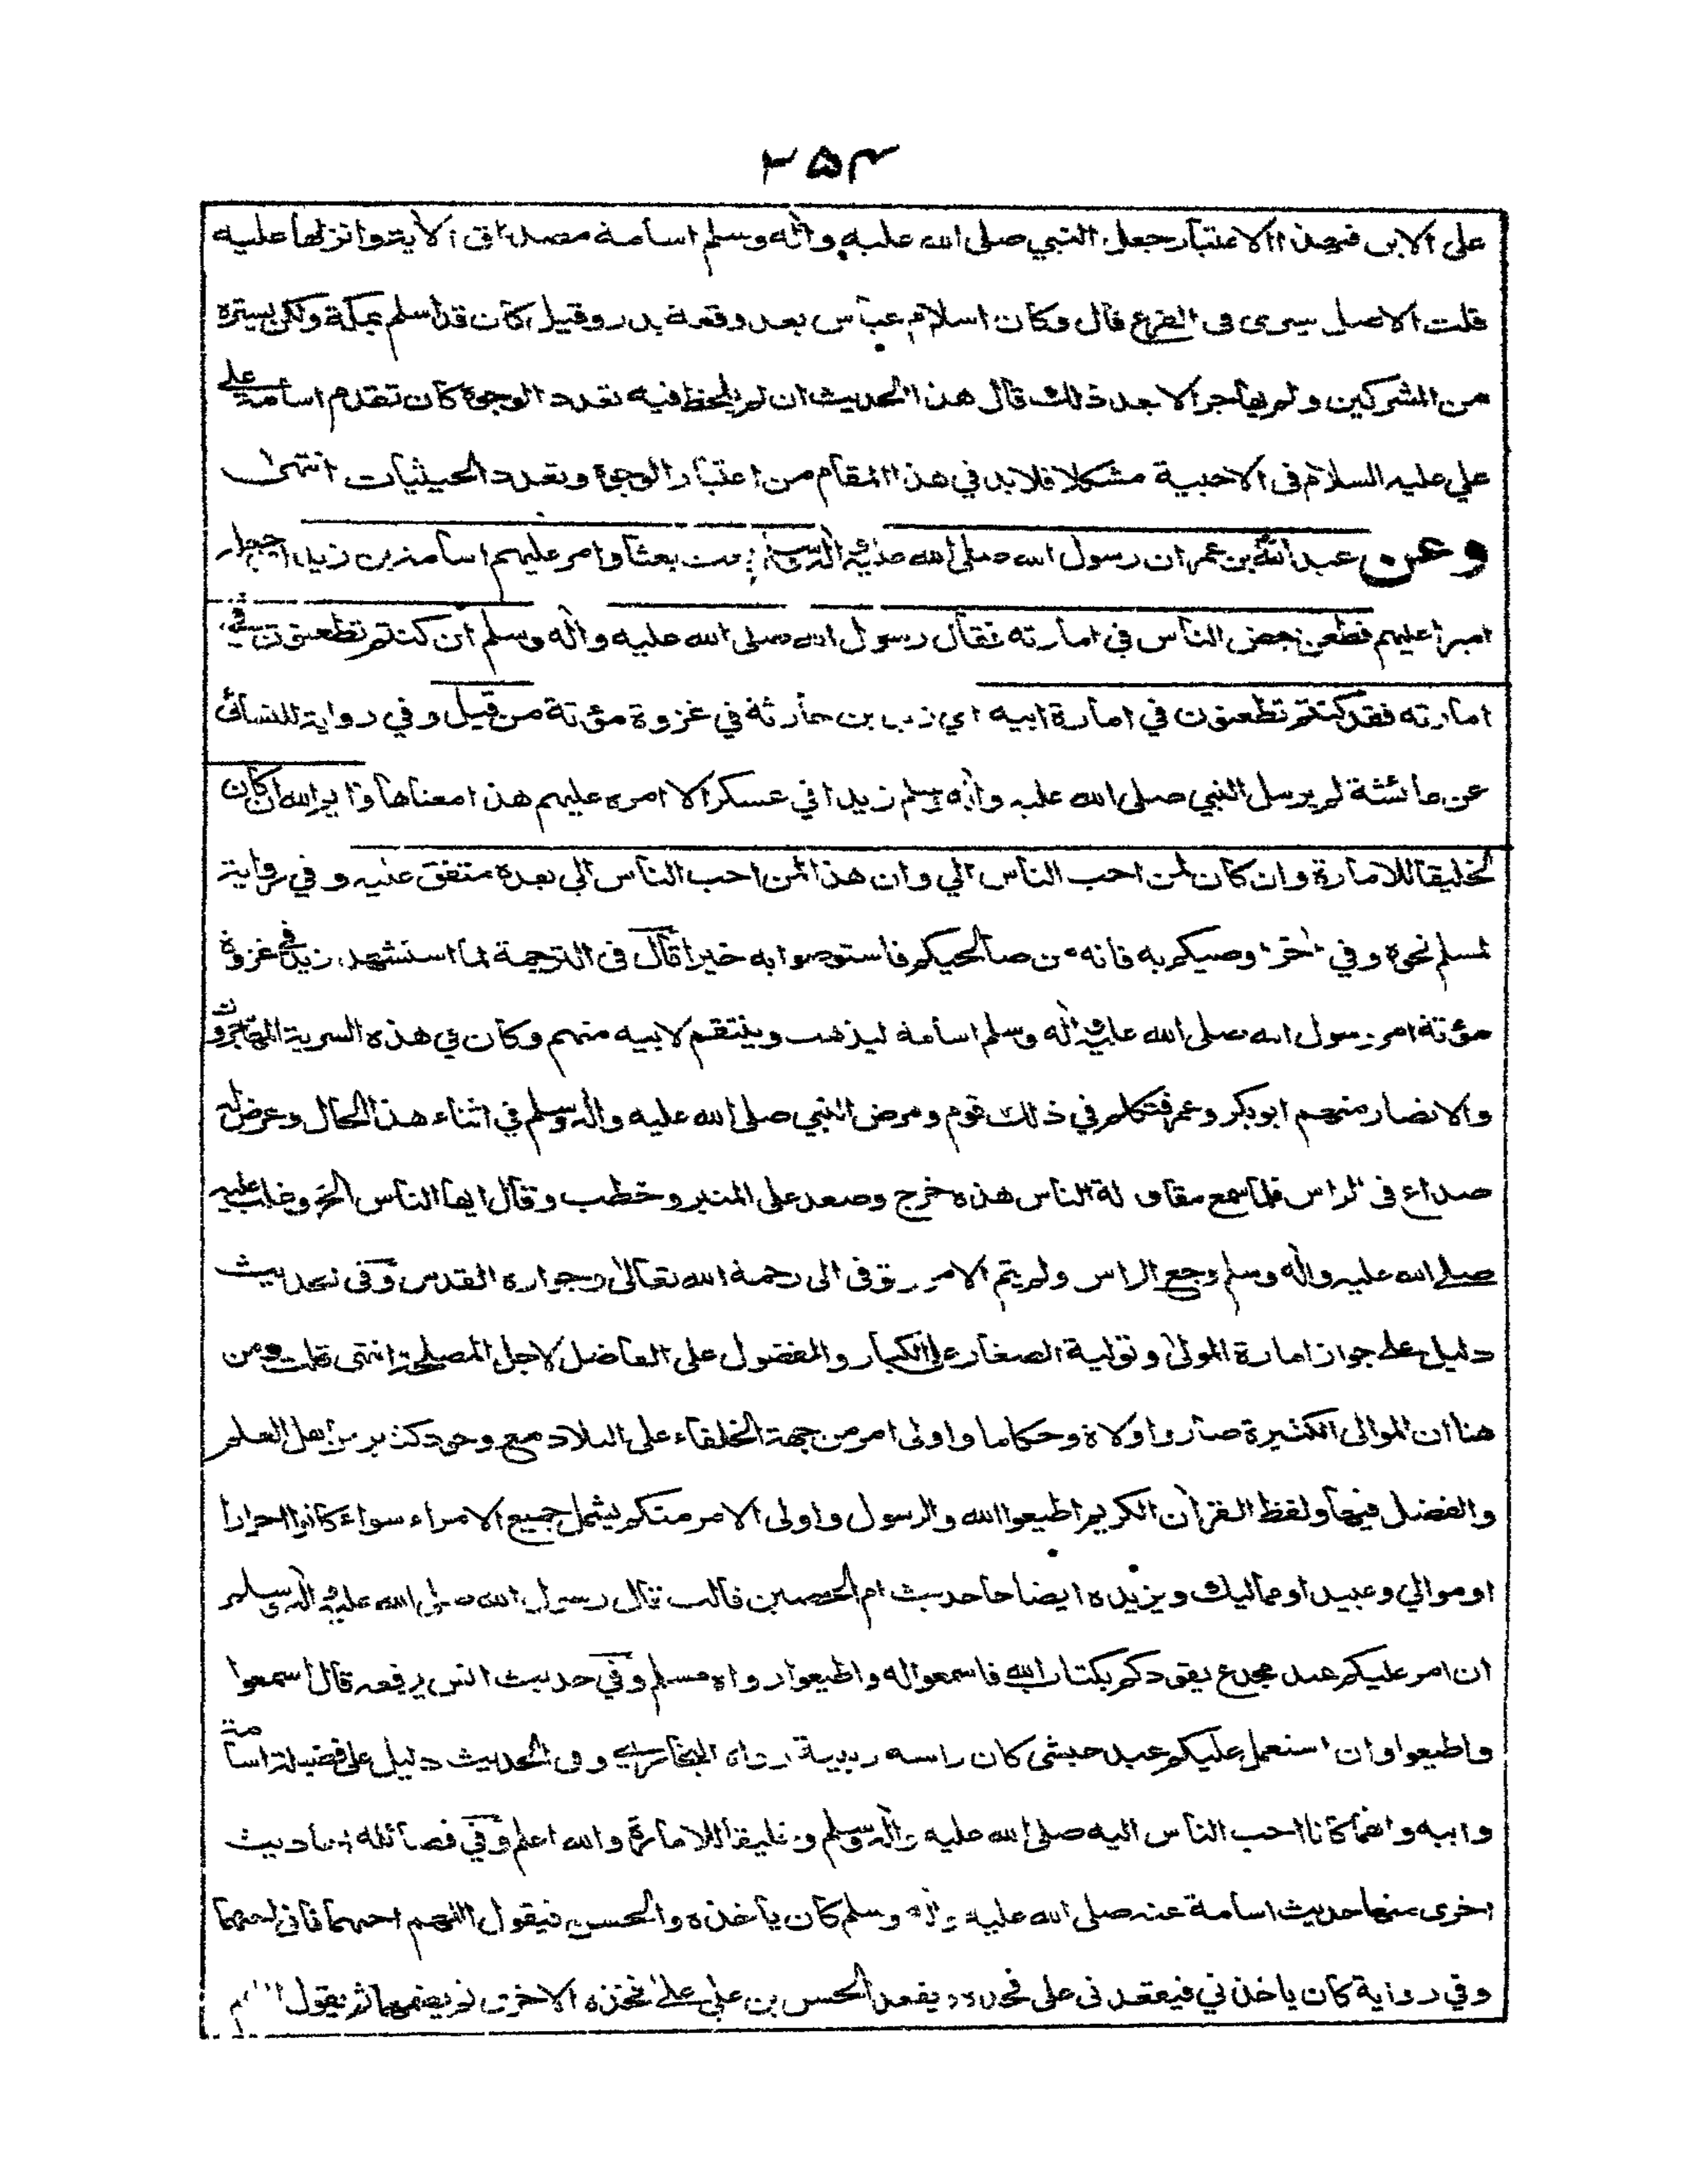 ٢٥٤
على الابن فبهذا الاعتبار جعل النبي صلى الله عليه وآله وسلم اسامة مصداق الآية وانزلها عليه
قلت الاصل يسرى فى الفرع قال وكان اسلام عباس بعد وقعة بدر وقيل كان قد اسلم بمكة ولكن يستره
من المشركين ولم يهاجر الا بعد ذلك قال هذا الحديث ان لم يلحظ فيه تعدد الوجوه كان تقدم اسامة على
علي عليه السلام فى الاحبية مشكلا فلا بد في هذا المقام من اعتبار الوجوه وتعدد الحيثيات انتهى
وعن عبد الله بن عمر ان رسول الله صلى الله عليه وآله وسلم بعث بعثا وامر عليهم اسامة بن زيد اي جعله
اميرا عليهم فطعن بعض الناس في امارته فقال رسول الله صلى الله عليه وآله وسلم ان كنتم تطعنون في
امارته فقد كنتم تطعنون في امارة ابيه اي زيد بن حارثة في غزوة مؤتة من قبل وفي رواية للنسائى
عن عائشة لم يرسل النبي صلى الله عليه وآله وسلم زيدا في عسكر الا امره عليهم هذا معناها وايم الله ان كان
لخليقا للامارة وان كان لمن احب الناس الي وان هذا لمن احب الناس الي بعده متفق عليه وفي رواية
لمسلم نحوه وفي اخره اوصيكم به فانه من صالحيكم فاستوصوا به خيرا قال فى الترجمة لما استشهد زيد في غزوة
مؤتة امر رسول الله صلى الله عليه وآله وسلم اسامة ليذهب وينتقم لابيه منهم وكان في هذه السرية المهاجرون
والانصار منهم ابو بكر وعمر فتكلم في ذلك قوم ومرض النبي صلى الله عليه وآله وسلم في اثناء هذا الحال وعرض له
صداع فى الراس فلما سمع مقاولة الناس هذه خرج وصعد على المنبر وخطب وقال ايها الناس الخ وغلب عليه
صلى الله عليه وآله وسلم وجع الراس ولم يتم الامر وتوفى الى رحمة الله تعالى وجواره القدس وفى الحديث
دليل على جواز امارة المولى وتولية الصغار على الكبار والمفضول على الفاضل لاجل المصلحة انتهى قلت ومن
هنا ان الموالى الكثيرة صاروا ولاة وحكاما واولى امر من جهة الخلفاء على البلاد مع وجود كثير من اهل العلم
والفضل فيها ولفظ القرآن الكريم اطيعوا الله والرسول واولى الامر منكم يشمل جميع الامراء سواء كانوا احرارا
او موالي وعبيدا ومماليك ويزيده ايضاحا حديث ام الحصين قالت قال رسول الله صلى الله عليه وآله وسلم
ان امر عليكم عبد مجدع يقودكم بكتاب الله فاسمعوا له واطيعوا رواه مسلم وفي حديث انس يرفعه قال اسمعوا
واطيعوا وان استعمل عليكم عبد حبشى كان راسه زبيبة رواه البخاري وفى الحديث دليل على فضيلة اسامة
وابيه وانهما كانا احب الناس اليه صلى الله عليه وآله وسلم وخليقا للامارة والله اعلم وفي فضائله احاديث
اخرى منها حديث اسامة عنه صلى الله عليه وآله وسلم كان ياخذه والحسن فيقول اللهم احبهما فانى احبهما
وفي رواية كان ياخذني فيقعدنى على فخذه ويقعد الحسن بن علي على فخذه الاخرى ثم يضمهما ثم يقول اللهم